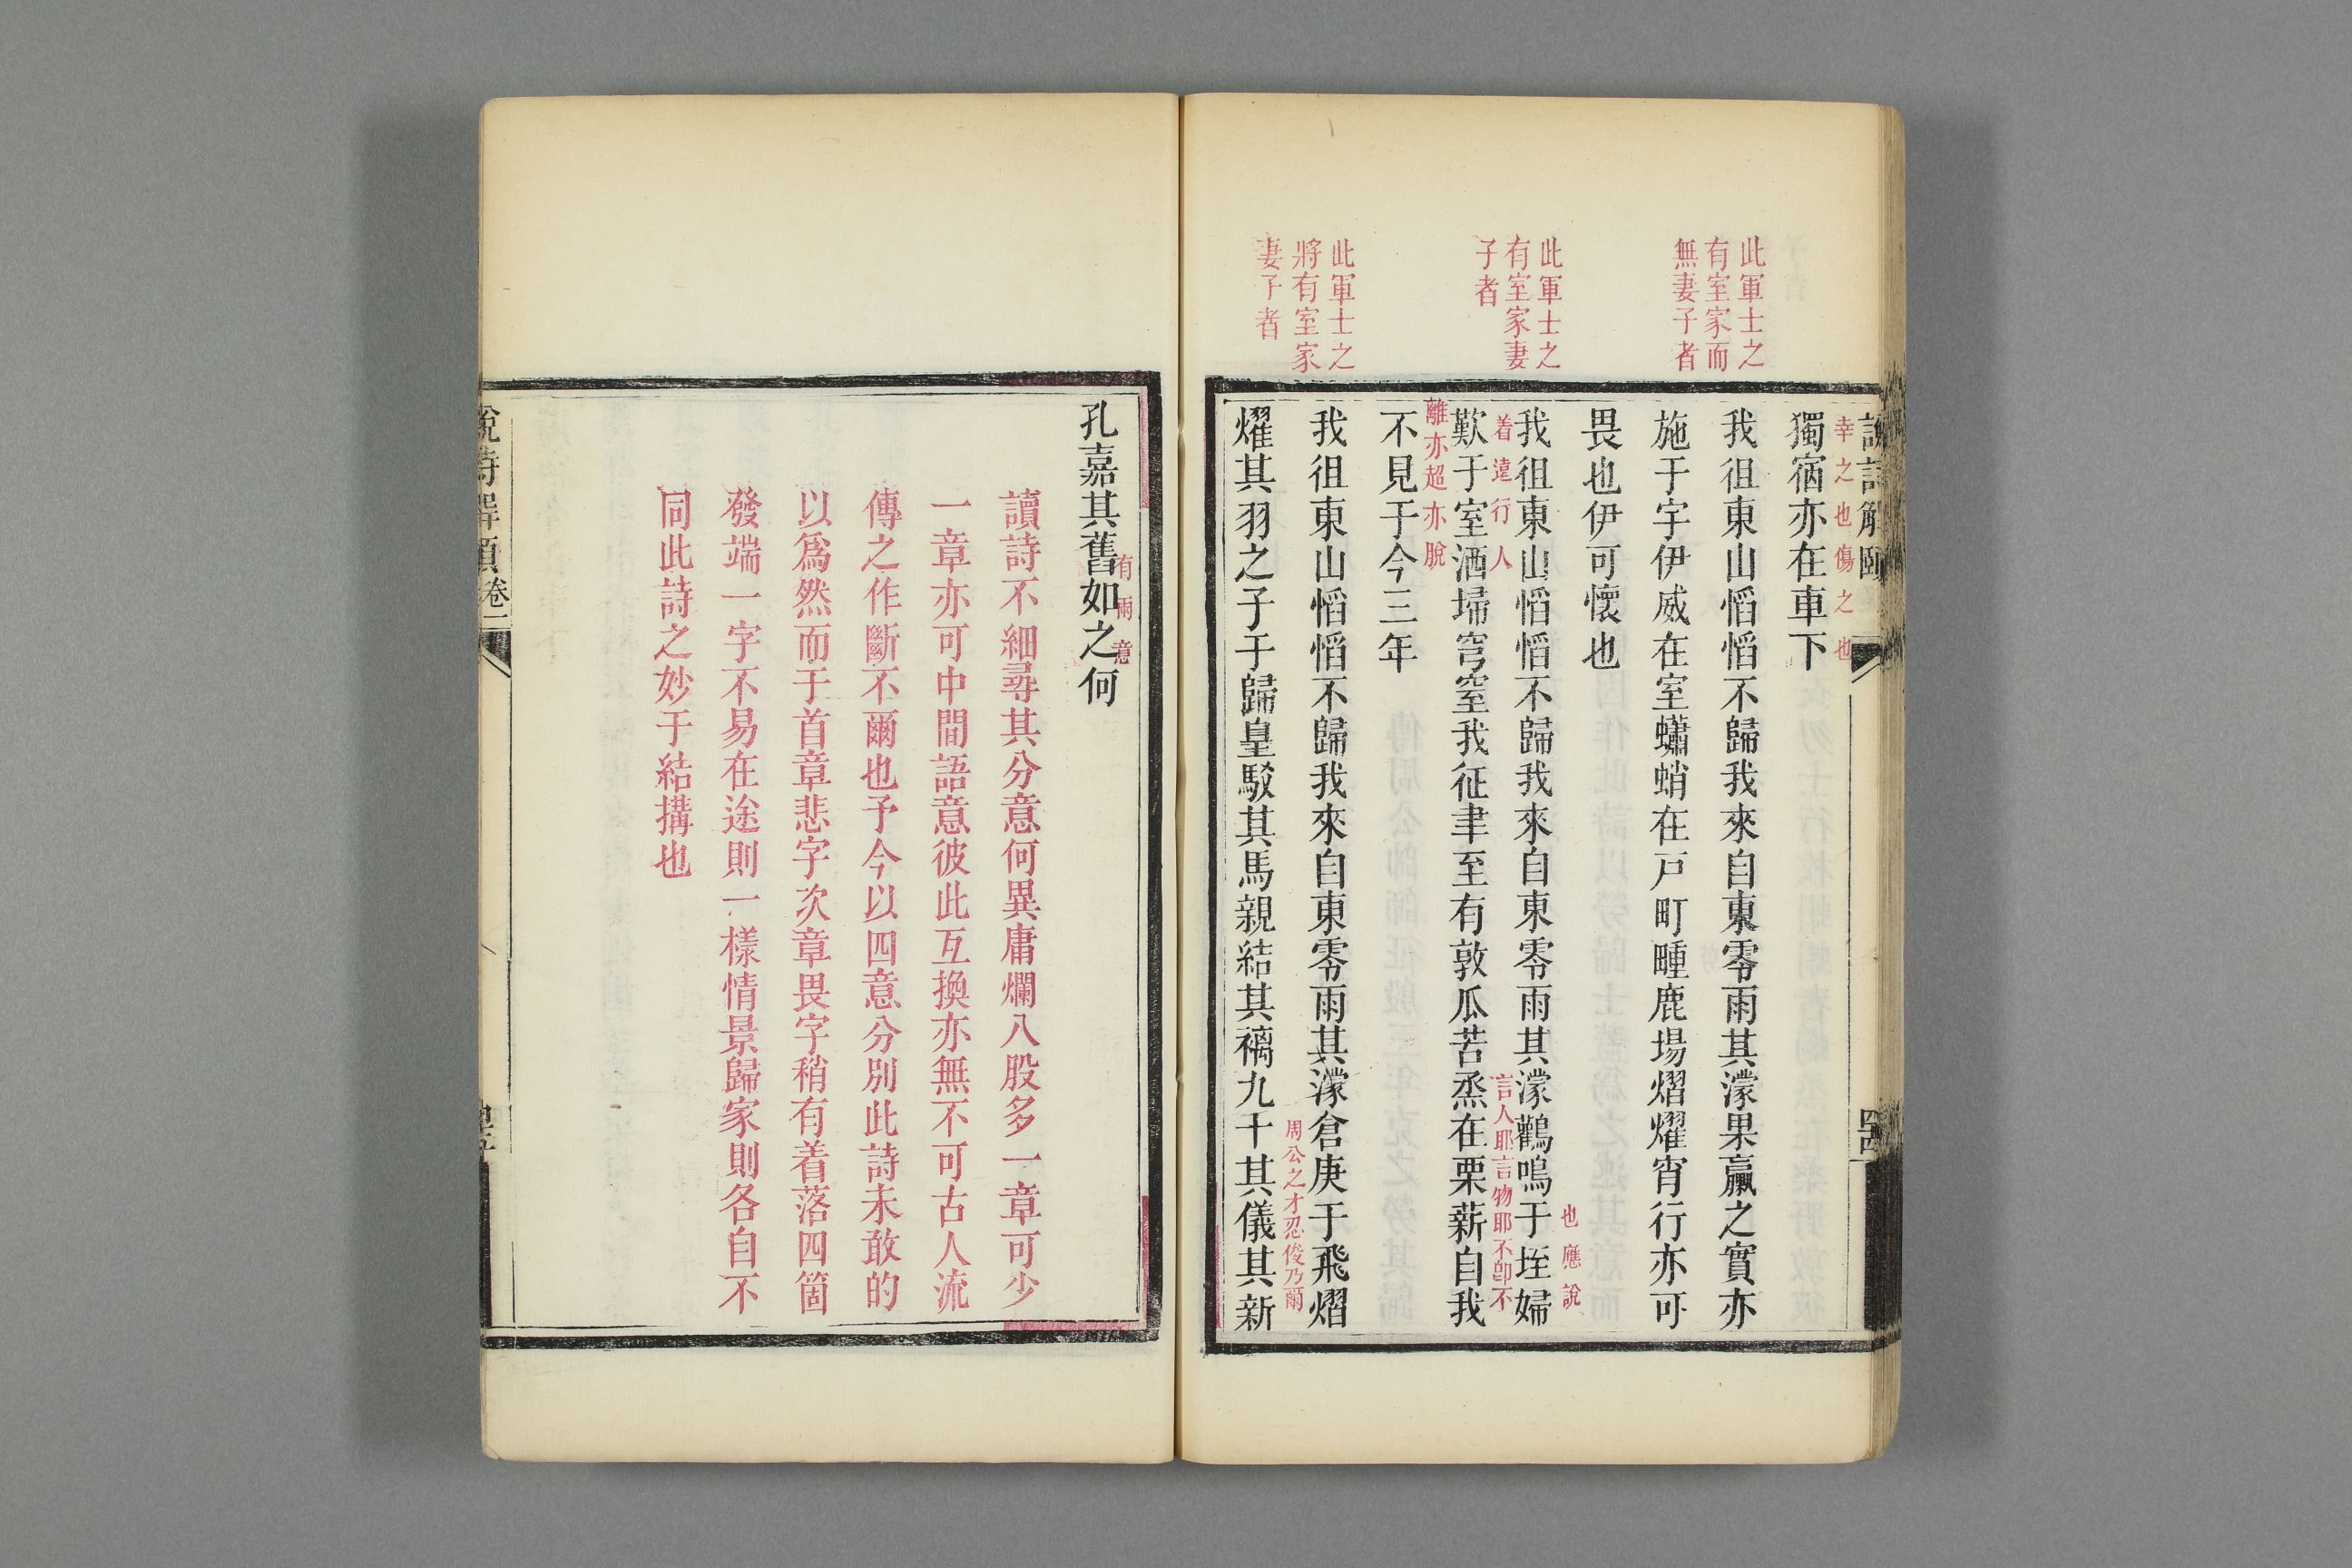 此軍士之
有室家而
無妻子者
此軍士之
有室家妻
子者
此軍士之
將有室家
妻子者
幸之也傷之也
獨宿亦在車下
我徂東山慆慆不歸我來自東零雨其濛果臝之實亦
施于宇伊威在室蠨蛸在戸町畽鹿場熠燿宵行亦可
畏也伊可懷也
也應說
我徂東山慆慆不歸我來自東零雨其濛鸛鳴于垤婦
着遠行人
言人耶言物耶不卽不
歎于室洒埽穹窒我征聿至有敦瓜苦烝在栗薪自我
離亦超亦脫
不見于今三年
我徂東山慆慆不歸我來自東零雨其濛倉庚于飛熠
周公之才忍俊乃爾
燿其羽之子于歸皇駁其馬親結其褵九十其儀其新
有兩意
孔嘉其舊如之何
讀詩不細尋其分意何異庸爛八股多一章可少
一章亦可中間語意彼此互換亦無不可古人流
傳之作斷不爾也予今以四意分別此詩未敢的
以爲然而于首章悲字次章畏字稍有着落四箇
發端一字不易在途則一樣情景歸家則各自不
同此詩之妙于結搆也
卷一